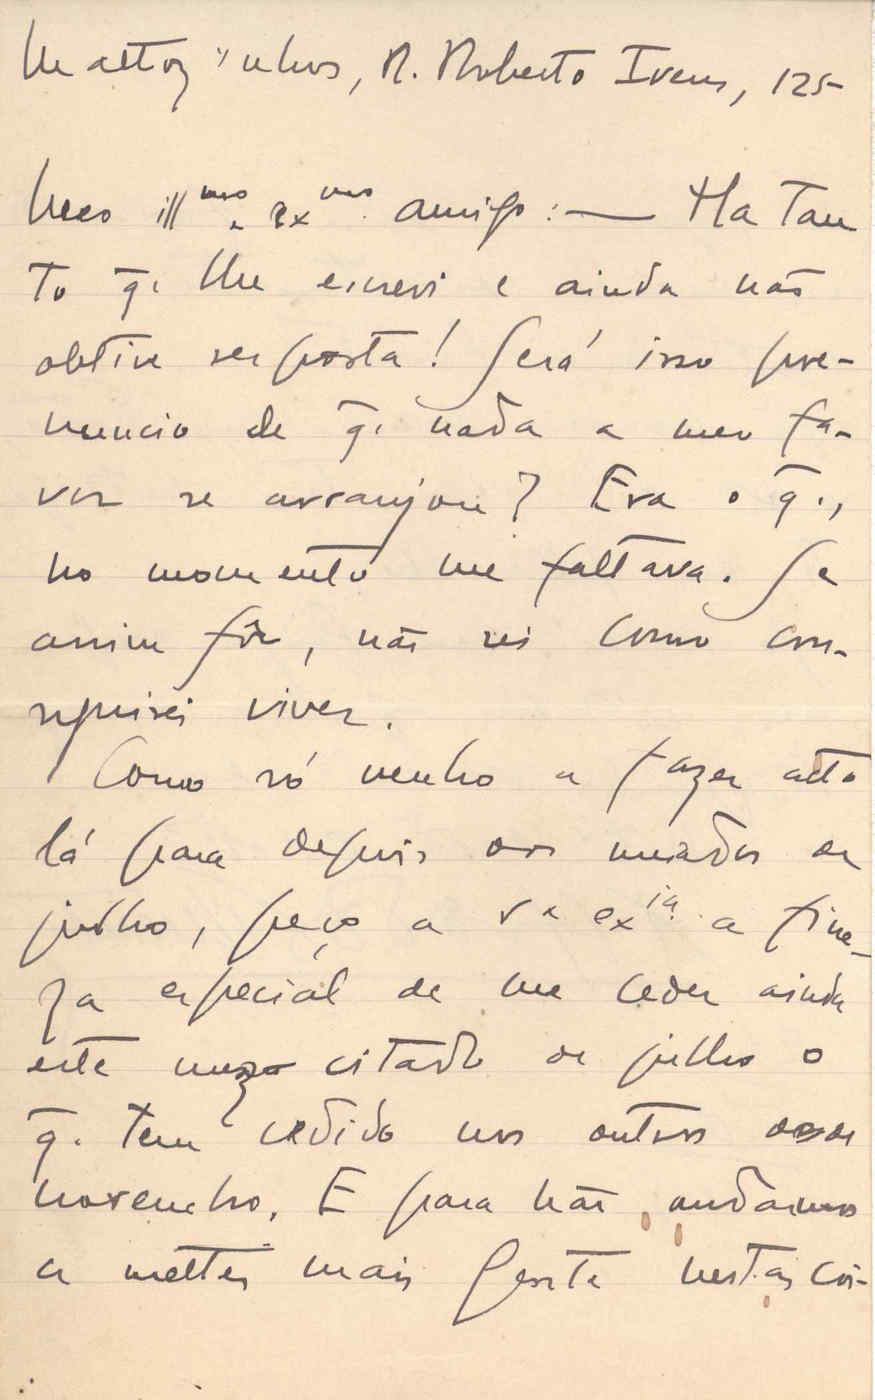 Mattozinhos, R. Roberto Ivens, 125
Meo ill.mo e ex.mo amigo: — Ha tan
to q. lhe escrevi e ainda não
obtive resposta! Será isso pre-
nuncio de q. nada a meu fa-
vor se arranjou? Era o q.,
no momento me faltava. Se
assim fôr, não sei como con-
seguirei viver.
Como só venho a fazer acto
lá para depois dos meados de
julho, peço a v. ex.ia a fine-
za especial de me ceder ainda
este mez citado de julho o
q. tem cedido nos outros desde
novembro. E para não andarmos
a metter mais gente nestas coi-